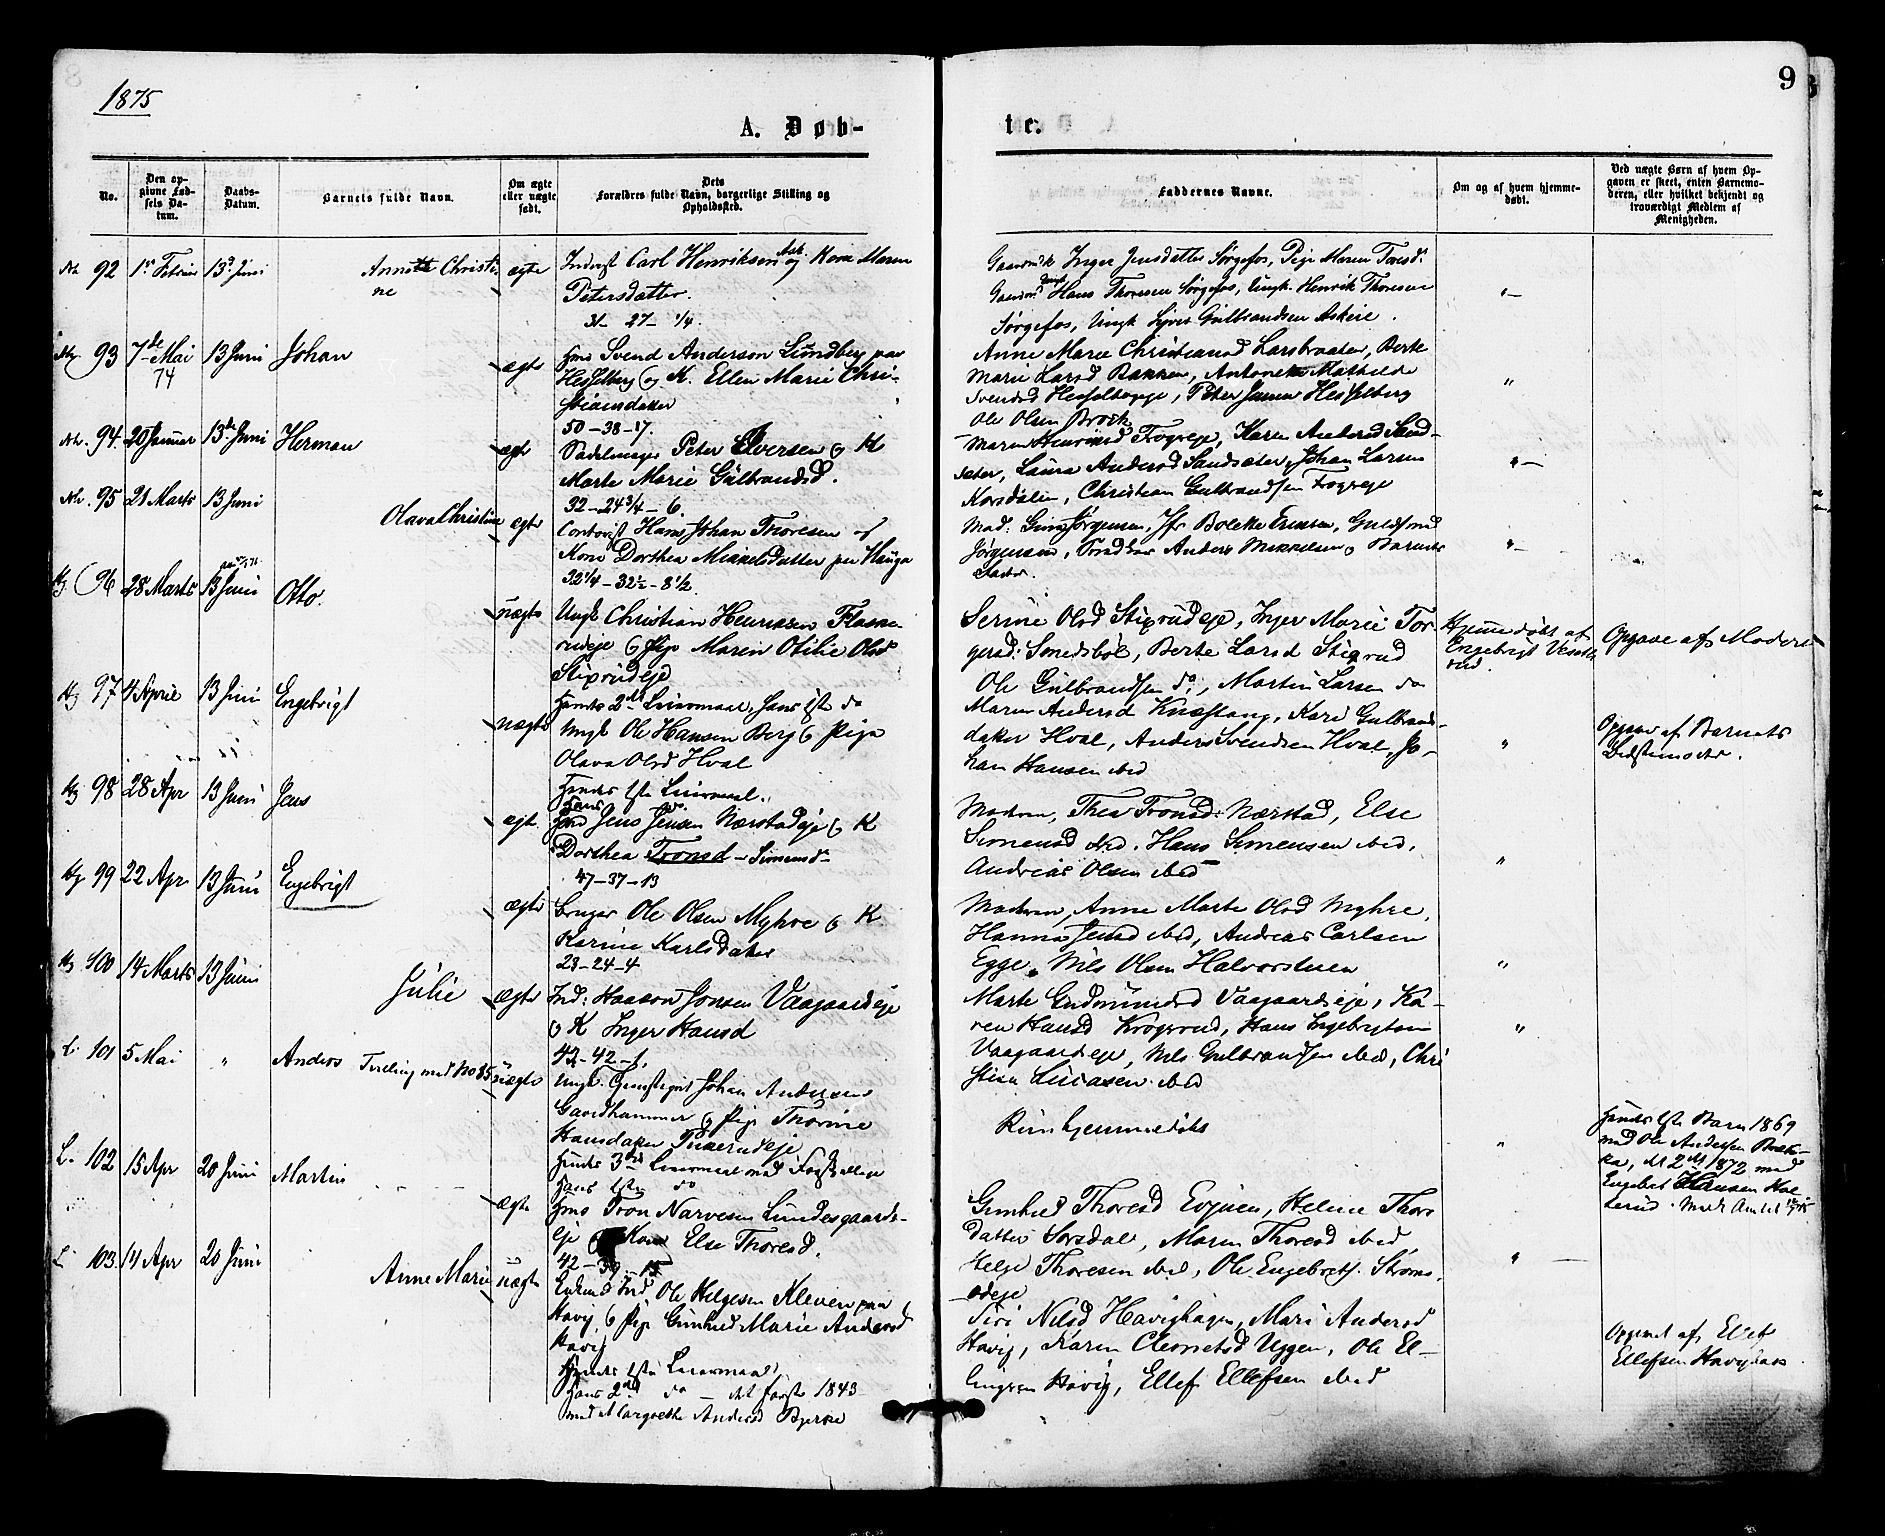 1875
9
A. Døb-
te.
No.
Den op-
givne Fød-
sels Da-
tum.
Daabs-
Datum.
Barnets fulde Navn.
Om ægte
eller uægte
født.
Dets
Forældres fulde Navn, borgerlige Stilling og
Opholdsted.
Faddernes Navne.
Om og af hvem hjemme-
døbt.
Ved uægte Børn af hvem Op-
gaven er skeet, enten Barnemo-
deren, eller hvilket bekjendt og
troværdigt Medlem af
Menigheden.
92 13 Juni Annette Christi- ægte Inderst Carl Henriksen og Kone Maren
ne Petersdatter.
31 - 27 - 1/4.
Inger Jensdatter Sørgefos, Pige Maren Toresd.
Hans Thoresen Sørgefos, Ungk. Henrik Thoresen
Sørgefos, Ungk Syver Gulbrandsen
93 7de Mai 13 Juni Johan
74
ægte Hms Svend Anderson Lundberg paa
Hesselberg og K. Ellen Marie Chri-
stiansdatter
50 - 38 - 17.
Anne Marie Christiansd Larsbraaten, Berte
Marie Larsd Bakken, Antonette Mathilde
Svensd Hesselbergeje, Peter Jensen Hesselberg
Ole Olsen Brock
94. 20 Januar 13de Juni Herman
ægte Sadelmager Peter Elversen og K
Marte Marie Gulbrandsd.
32 - 24 3/4 - 6.
Maren Henriksd Fogreje, Karen Andersd Sand-
sæter, Laura Andersd Sandsæter, Johan Larsen
Korsdalen, Christian Gulbrandsen Fogreje
95 21 Marts 13 Juni
Olava Christine ægte Contorist Hans Johan Thoresen og
Kone Dorthea Mikkelsdatter paa Hauga
32 1/4 - 32 1/2 - 8 1/2.
Mad: Jørgensen, Jfr Bolette Eriksen, Guldsmed
Jørgensen, Anders Mikkelsen, Barnets
Fader.
96 28 Marts 13 Juni Otto.
uægte Ungk Christian Henriksen Flaske-
rudeje og Pige Maren Otilie Olsd
Stixrudeje
Hendes 2det Leiermaal, hans 1ste do
Serine Olsd Stixrudeje, Inger Marie Tor-
gersd: Smedsbøl, Berte Larsd Stixrud
Ole Gulbrandsen do:, Martin Larsen do
Hjemmedøbt af
Engebrigt Vesete-
rud.
Opgave af Moderen
97 4 April 13 Juni Engebrigt
uægte Ungk Ole Hansen Berg og Pige
Olava Olsd Hval
Hendes 1ste Leiermaal.
Hans do.
Maren Andersd Knæstang, Kari Gulbrands-
datter Hval, Anders Svendsen Hval, Jo-
han Hansen ibid
Opgave af Barnets
Bedstemoder.
98 28 Apr 13 Juni Jens
ægte Hmd Jens Jensen Nærstadeje og K
Dorthea Tronsd - Simensd
47 - 37 - 13
Moderen, Thea Tronsd: Nærstad, Else
Simensd ibid. Hans Simensen ibid,
Andreas Olsen ibid
99 22 Apr 13 Juni Engebrigt
ægte Bruger Ole Olsen Myhre og K
Karine Karlsdatter
28 - 24 - 4
Moderen, Anne Marte Olsd Myhre,
Hanna Jensd ibid, Andreas Carlsen
Egge, Nils Olsen Halvorstuen
100 14 Marts 13 Juni
Julie ægte Ind: Haakon Jonsen Vaagaardseje
og K Inger Hansd
43 - 42 - 1,
Marte Gudmundsd Vaagaardseje, Ka-
ren Hansd Krogsrud, Hans Engebrigtsen
Vaagaardseje, Nils Gulbrandsen ibid, Chri-
stian Lucasen ibid
101 5 Mai " Anders Tvilling med No 85 uægte Ungk. Johan Andersen
Gaardhammer og Pige Thorine
Hansdatter
Hendes 3die Leiermaal med
Hans 1ste do
hjemmedøbt
Hendes 1ste Barn 1869
med Ole Andersen
, det 2det 1872 med
Engebret Hansen
102 15 Apr 20 Juni Martin
ægte Hms Tron Narvesen Lundesgaards-
eje og Kone Else Thoresd.
42 - 39 - 13
Gunhild Thoresd Evjuen, Helene Thors-
datter Sorsdal, Maren Thoresd ibid
Helge Thoresen ibid, Ole Engebretsen Strøms-
odeje
103. 14 Apr 20 Juni
Anne Marie uægte Enkem. Ind. Ole Helgesen Kleven paa
Havig og Pige Gunhild Marie Andersd
Havig
Hendes 1ste Leiermaal,
Hans 2det do - det første 1843
med Margrethe Andersd Bjerke
Siri Nilsd Havighagen, Mari Andersd
Havig, Karen Clemetsd Uggen, Ole El-
lingsen Havig, Ellef Ellefsen ibid
Opgivet af Ellef
Ellefsen Havighagen